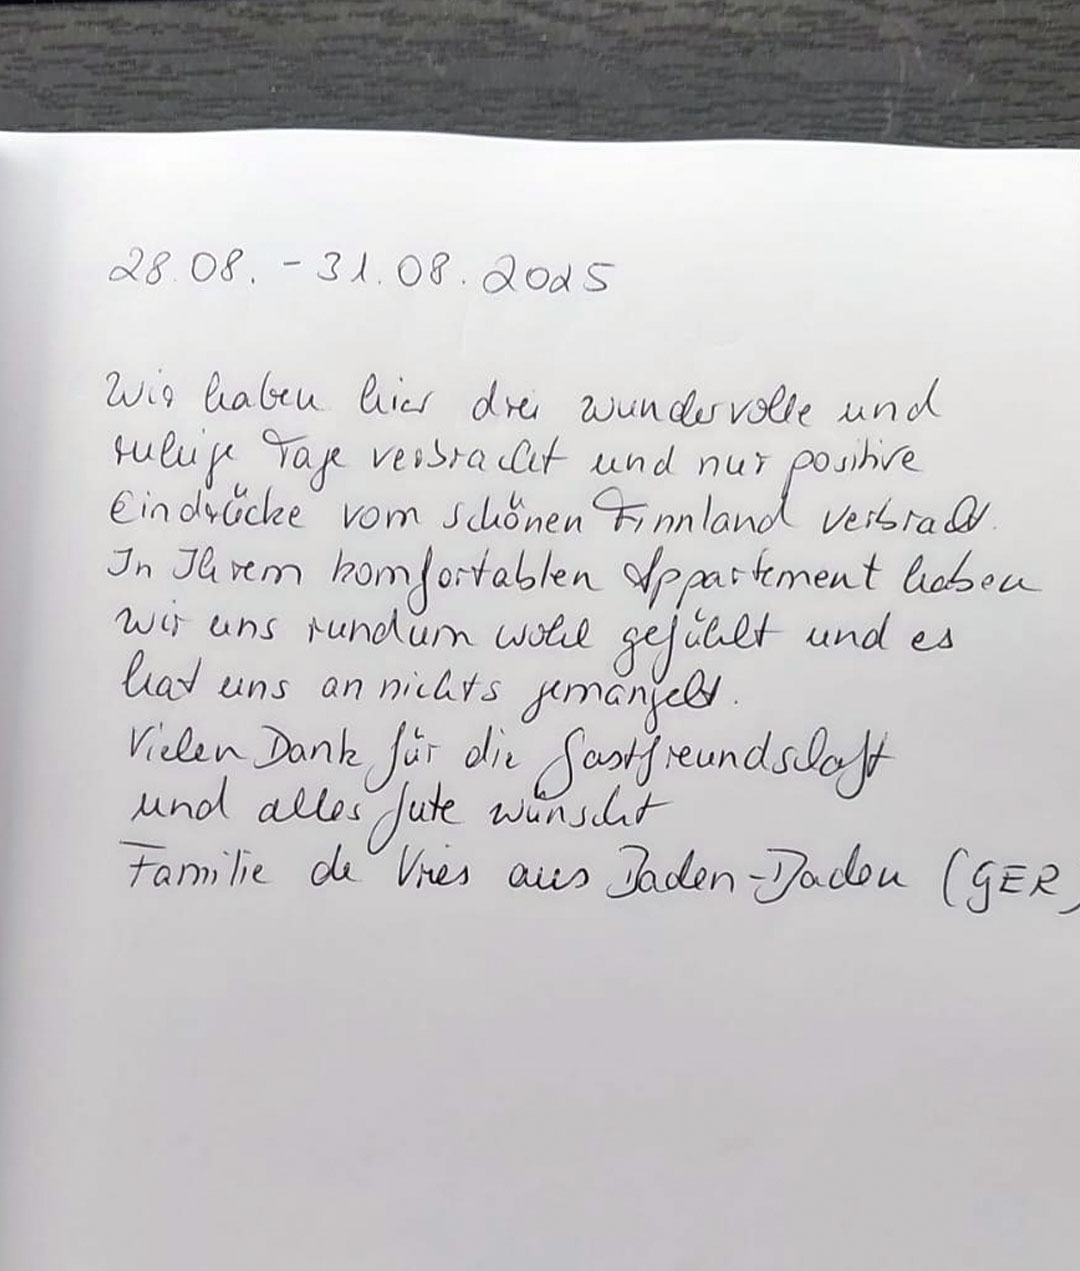 28.08. - 31.08.2025
Wir haben hier drei wundervolle und
ruhige Tage verbracht und nur positive
Eindrücke vom schönen Finnland verbracht.
In Ihrem komfortablen Appartement haben
wir uns rundum wohl gefühlt und es
hat uns an nichts gemangelt.
Vielen Dank für die Gastfreundschaft
und alles Gute wünscht
Familie de Vries aus Baden-Baden (GER)